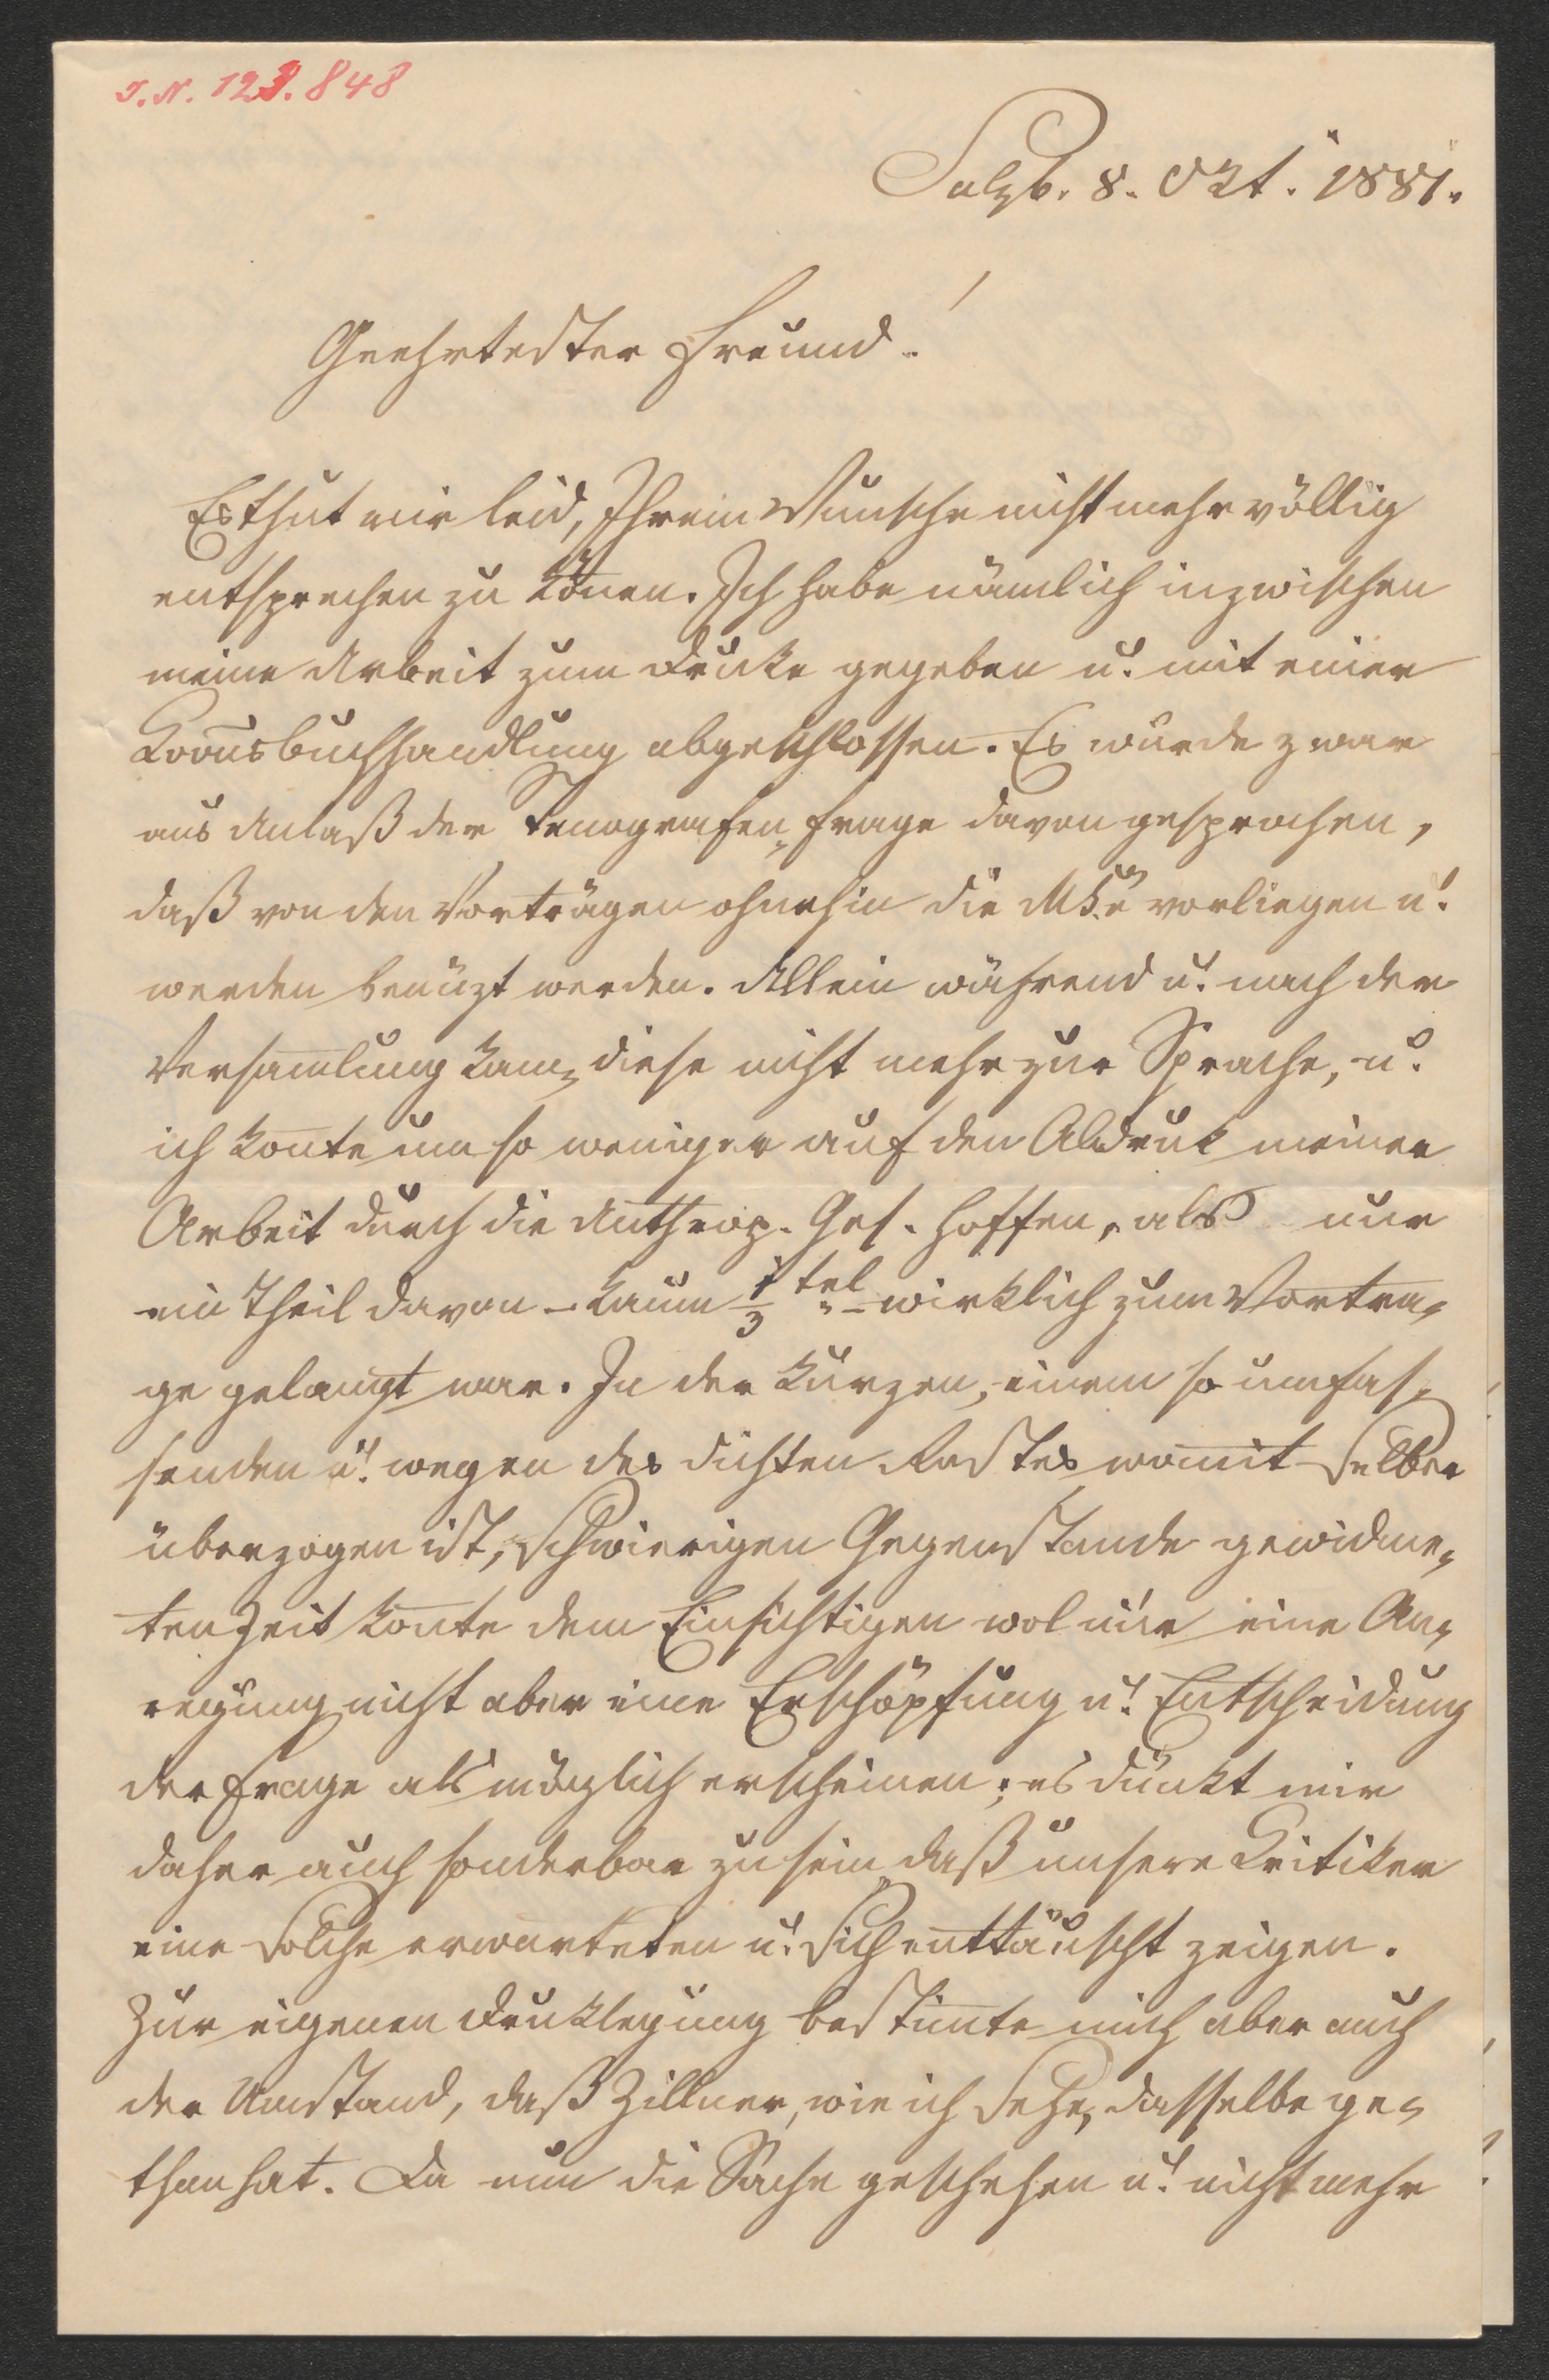 I. N. 123.848
Salzb. 8. Okt. 1881.
Geehrtester Freund!
Es thut mir leid, Ihrem Wunsche nicht mehr völlig
entsprechen zu köñen. Ich habe nämlich inzwischen
meine Arbeit zum Drucke gegeben u. mit einer
buchhandlung abgeschlossen. Es wurde zwar
aus Anlaß der Stenografen-Frage davon gesprochen,
daß von den Vorträgen ohnehin die vorliegen u.
werden benüzt werden. Allein während u. nach der
Versam̄lung kam diese nicht mehr zur Sprache, u.
ich kon̄te um so weniger auf den Abdruk meiner
Arbeit durch die Anthrop. Ges. hoffen, als nur
ein Theil davon – kaum 1/3 tel – wirklich zum Vortra-
ge gelangt war. In der kurzen, einem so umfas-
senden u. wegen des dichten Rostes womit selber
überzogen ist, schwierigen Gegenstande gewidme-
ten Zeit kon̄te dem Einsichtigen wol nur eine An-
regung nicht aber eine Erschöpfung u. Entscheidung
der Frage als möglich erscheinen; es dünkt mir
daher auch sonderbar zu sein, daß unsere Kritiker
eine solche erwarteten u. sich enttäuscht zeigen.
Zur eigenen Druklegung bestim̄te mich aber auch
der Umstand, daß Zillner, wie ich sehe, dasselbe ge-
than hat. Da nun die Sache geschehen u. nicht mehr